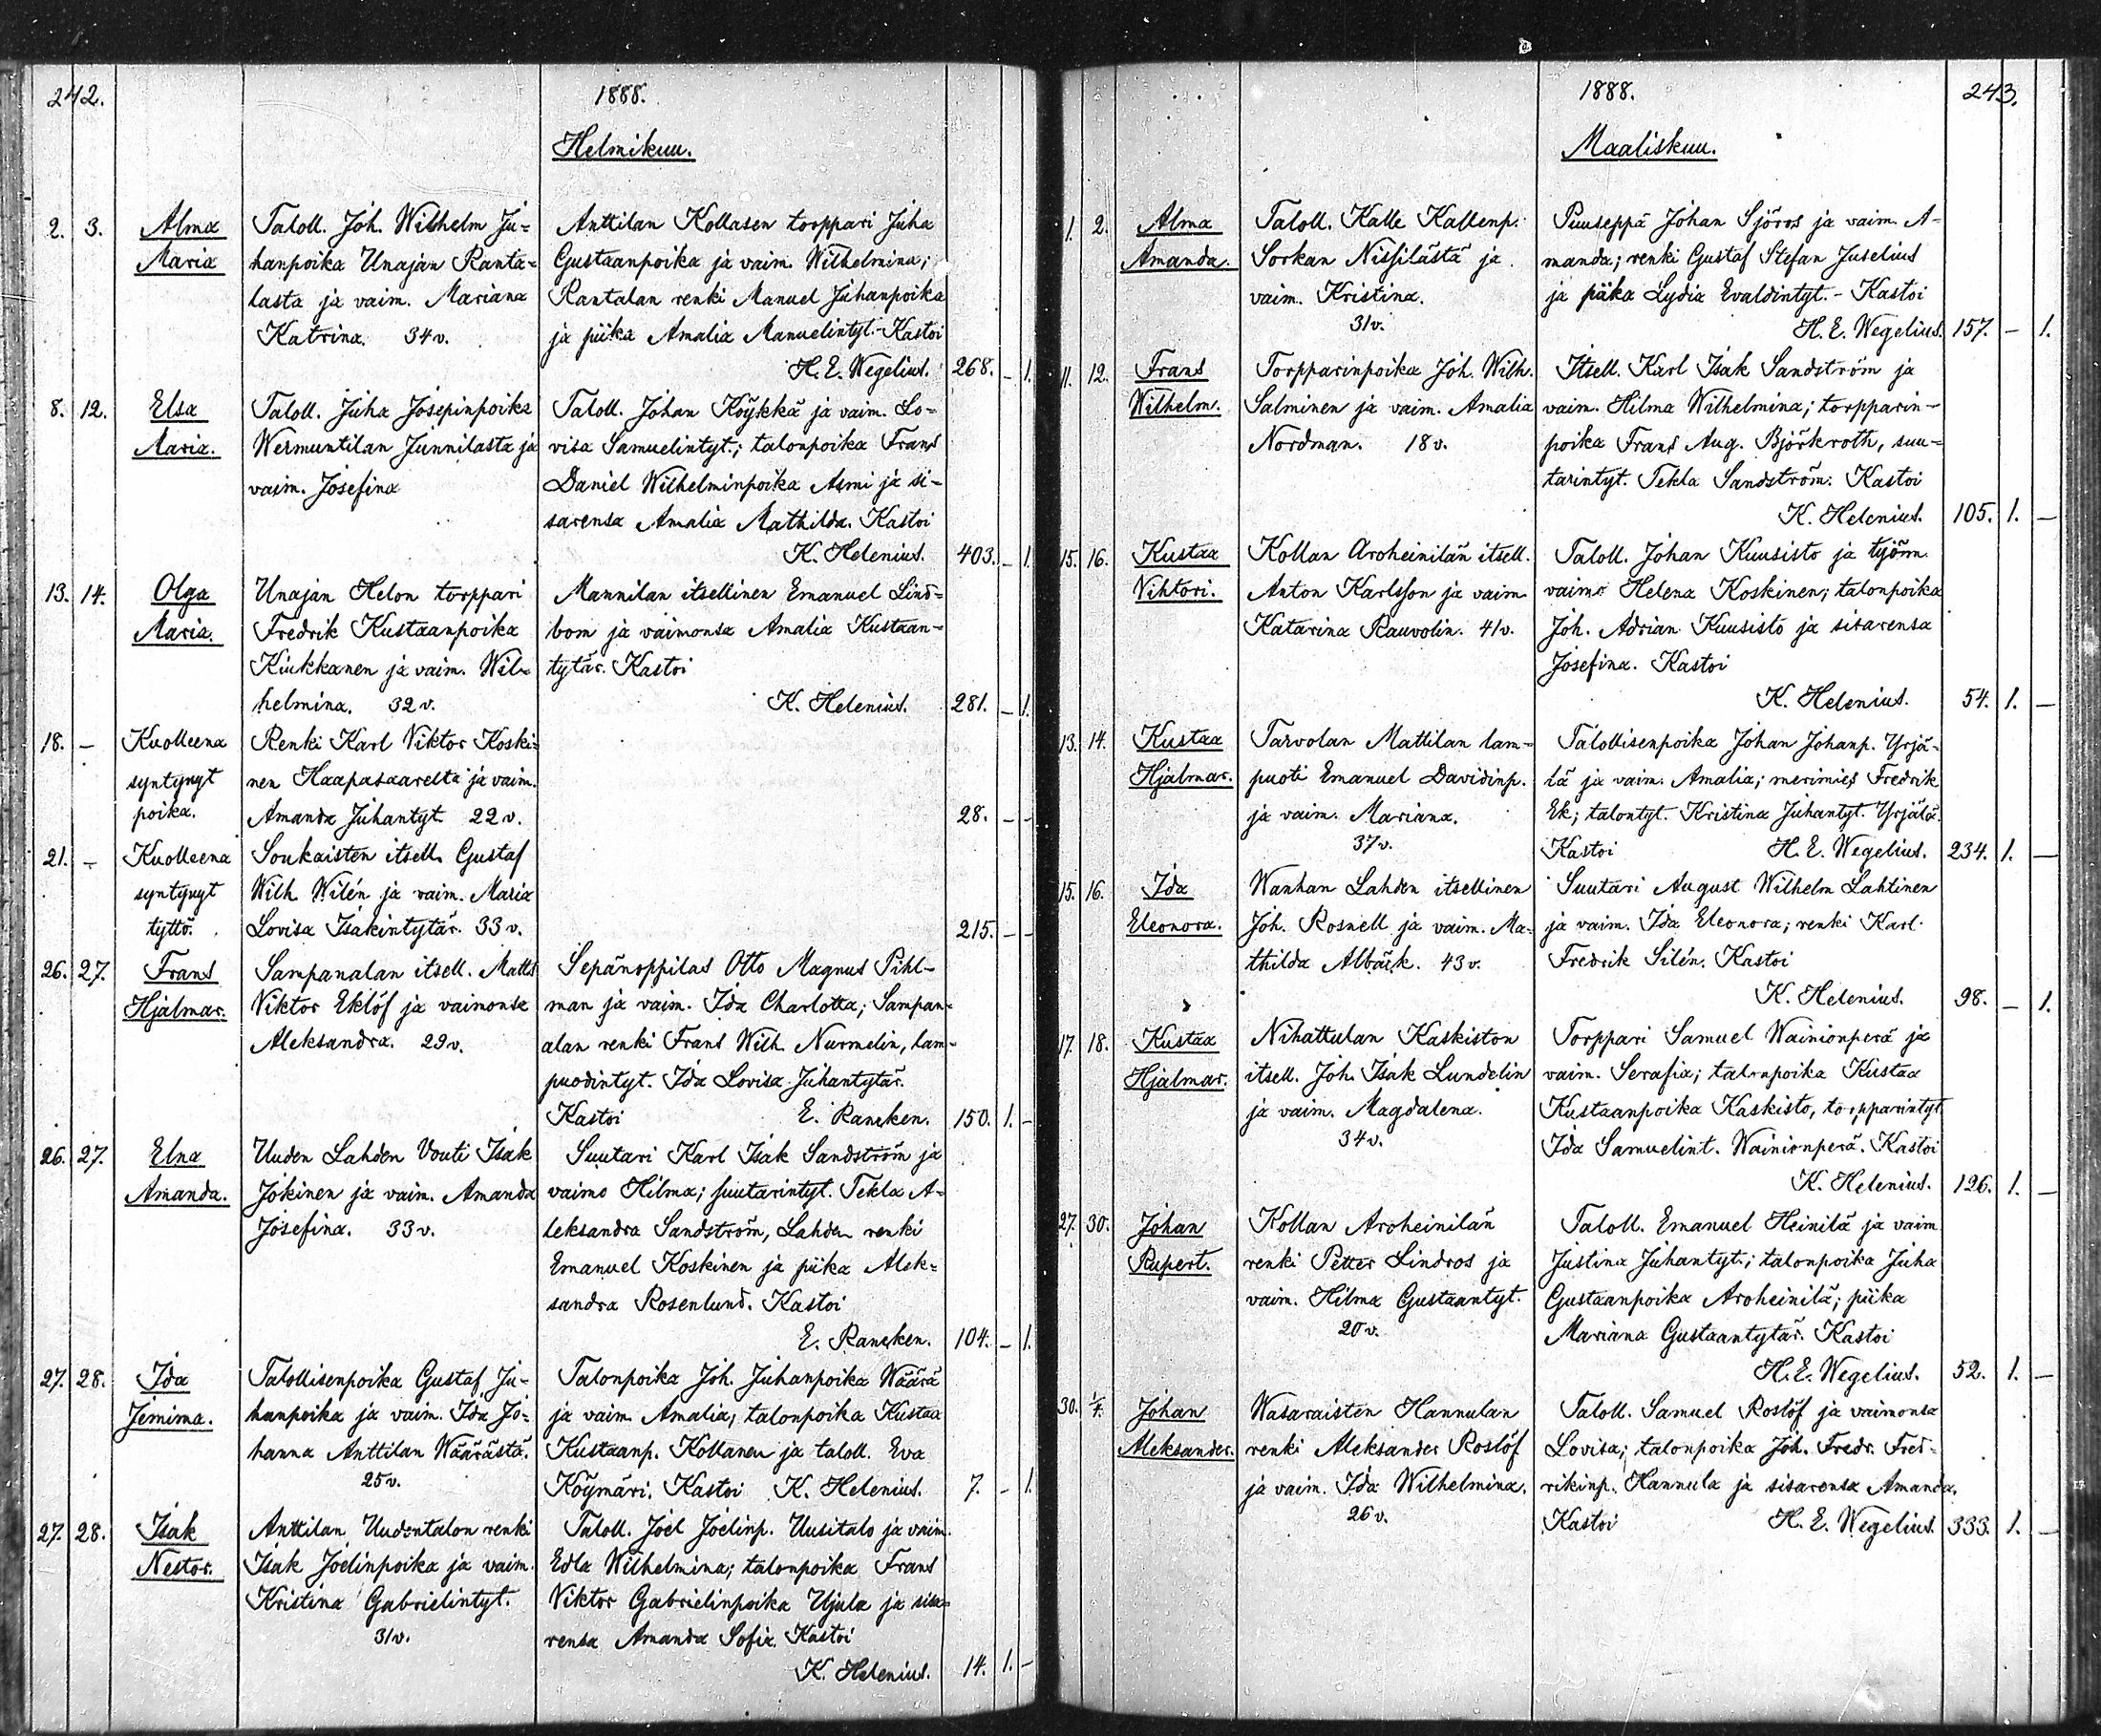 242.
1888.
Helmikuu.
2. 3. Alma Taloll. Joh. Wilhelm Ju= Anttilan Kollasen torppari Juha
Maria hanpoika Unajan Ranta= Gustaanpoika ja vaim. Wilhelmina;
lasta ja vaim. Mariana Rantalan renki Manuel Juhanpoika
Katrina. 34 v. ja piika Amalia Manuelintyt.- Kastoi
H. E. Wegelius. 268. - 1.
8. 12. Elsa Taloll. Juha Josepinpoika Taloll. Johan Köykkä ja vaim. Lo=
Maria. Wermuntilan Junnilasta ja visa Samuelintyt.; talonpoika Frans
vaim. Josefina Daniel Wilhelminpoika Asmi ja si-
sarensa Amalia Mathilda. Kastoi
K. Helenius. 403. - 1.
13. 14. Olga Unajan Helon torppari Mannilan itsellinen Emanuel Lind=
Maria. Fredrik Kustaanpoika bom ja vaimonsa Amalia Kustaan-
Kiukkanen ja vaim. Wil- tytär. Kastoi
helmina. 32 v. K. Helenius. 281. - 1.
18. - Kuolleena Renki Karl Viktor Koski=
syntynyt nen Haapasaarelta ja vaim.
poika. Amanda Juhantyt. 22 v. 28. - -
21. - Kuolleena Soukaisten itsell. Gustaf
syntynyt Wilh. Wilén ja vaim. Maria
tyttö. Lovisa Isakintytär. 33 v. 215. - -
26. 27. Frans Sampanalan itsell. Matts Sepänoppilas Otto Magnus Pihl-
Hjalmar. Viktor Eklöf ja vaimonsa man ja vaim. Ida Charlotta; Sampan-
Aleksandra. 29 v. alan renki Frans Wilh. Nurmelin, lam-
puodintyt. Ida Lovisa Juhantytär.
Kastoi E. Rancken. 150. 1. -
26. 27. Elna Uuden Lahden Vouti Isak Suutari Karl Isak Sandström ja
Amanda. Jokinen ja vaim. Amanda vaimo Hilma; suutarintyt. Tekla A-
Josefina. 33 v. leksandra Sandström, Lahden renki
Emanuel Koskinen ja piika Alek=
sandra Rosenlund. Kastoi
E. Rancken. 104. - 1.
27. 28. Ida Talollisenpoika Gustaf Ju- Talonpoika Joh. Juhanpoika Wäärä
Jemima. hanpoika ja vaim. Ida Jo= ja vaim. Amalia; talonpoika Kustaa
hanna Anttilan Wäärästä. Kustaanp. Kollanen ja taloll. Eva
25 v. Köymäri. Kastoi K. Helenius. 7. - 1.
27. 28. Isak Anttilan Uudentalon renki Taloll. Joel Joelinp. Uusitalo ja vaim.
Nestor. Isak Joelinpoika ja vaim. Edla Wilhelmina; talonpoika Frans
Kristina Gabrielintyt. Viktor Gabrielinpoika Ujula ja sisa=
31 v. rensa Amanda Sofia. Kastoi
K. Helenius. 14. 1. -
1888.
243.
Maaliskuu.
1. 2. Alma Taloll. Kalle Kallenp. Puuseppä Johan Sjöros ja vaim. A-
Amanda. Sorkan Nissilästä ja manda; renki Gustaf Stefan Juselius
vaim. Kristina. ja piika Lydia Evaldintyt. - Kastoi
31 v. H. E. Wegelius. 157. - 1.
11. 12. Frans Torpparinpoika Joh. Wilh. Itsell. Karl Isak Sandström ja
Wilhelm. Salminen ja vaim. Amalia vaim. Hilma Wilhelmina; torpparin-
Nordman. 18 v. poika Frans Aug. Björkroth, suu=
tarintyt. Tekla Sandström. Kastoi
K. Helenius. 105. 1. -
15. 16. Kustaa Kollan Aroheinilän itsell. Taloll. Johan Kuusisto ja työm.
Vihtori. Anton Karlsson ja vaim. vaimo Helena Koskinen; talonpoika
Katarina Rauvolin. 41 v. Joh. Adrian Kuusisto ja sisarensa
Josefina. Kastoi
K. Helenius. 54. 1. -
13. 14. Kustaa Tarvolan Mattilan lam= Talollisenpoika Johan Johanp. Yrjä-
Hjalmar. puoti Emanuel Davidinp. lä ja vaim. Amalia; merimies Fredrik
ja vaim. Mariana. Ek; talontyt. Kristina Juhantyt. Yrjälä.
37 v. Kastoi H. E. Wegelius. 234. 1. -
15. 16. Ida Wanhan Lahden itsellinen Suutari August Wilhelm Lahtinen
Eleonora. Joh. Rosnell ja vaim. Ma- ja vaim. Ida Eleonora; renki Karl
thilda Albäck. 43 v. Fredrik Silén. Kastoi
K. Helenius. 98. - 1.
17. 18. Kustaa Nihattulan Kaskiston Torppari Samuel Wainionperä ja
Hjalmar. itsell. Joh. Isak Lundelin vaim. Serafia; talonpoika Kustaa
ja vaim. Magdalena. Kustaanpoika Kaskisto, torpparintyt.
34 v. Ida Samuelint. Wainionperä. Kastoi
K. Helenius. 126. 1. -
27. 30. Johan Kollan Aroheinilän Taloll. Emanuel Heinilä ja vaim
Rupert. renki Petter Lindros ja Justina Juhantyt.; talonpoika Juha
vaim. Hilma Gustaantyt. Gustaanpoika Aroheinilä; piika
20 v. Mariana Gustaantytär. Kastoi
H. E. Wegelius. 52. 1. -
30. 1/4. Johan Wasaraisten Hannulan Taloll. Samuel Roslöf ja vaimonsa
Aleksander. renki Aleksander Roslöf Lovisa; talonpoika Joh. Fredr. Fred-
ja vaim. Ida Wilhelmina. rikinp. Hannula ja sisarensa Amanda.
26 v. Kastoi H. E. Wegelius. 333. 1. -